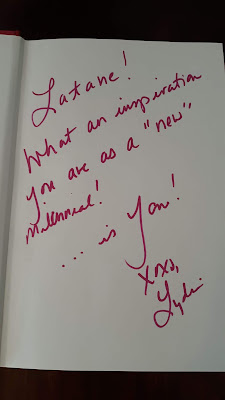 Latane!
What an inspiration
you are as a "new"
millennial!
... is You!
xoxo,
Lydia